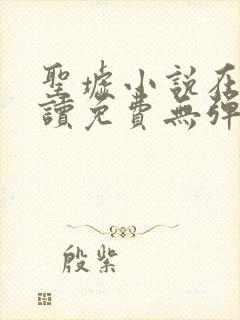 聖墟小說在
讀免費無彈
殷紫